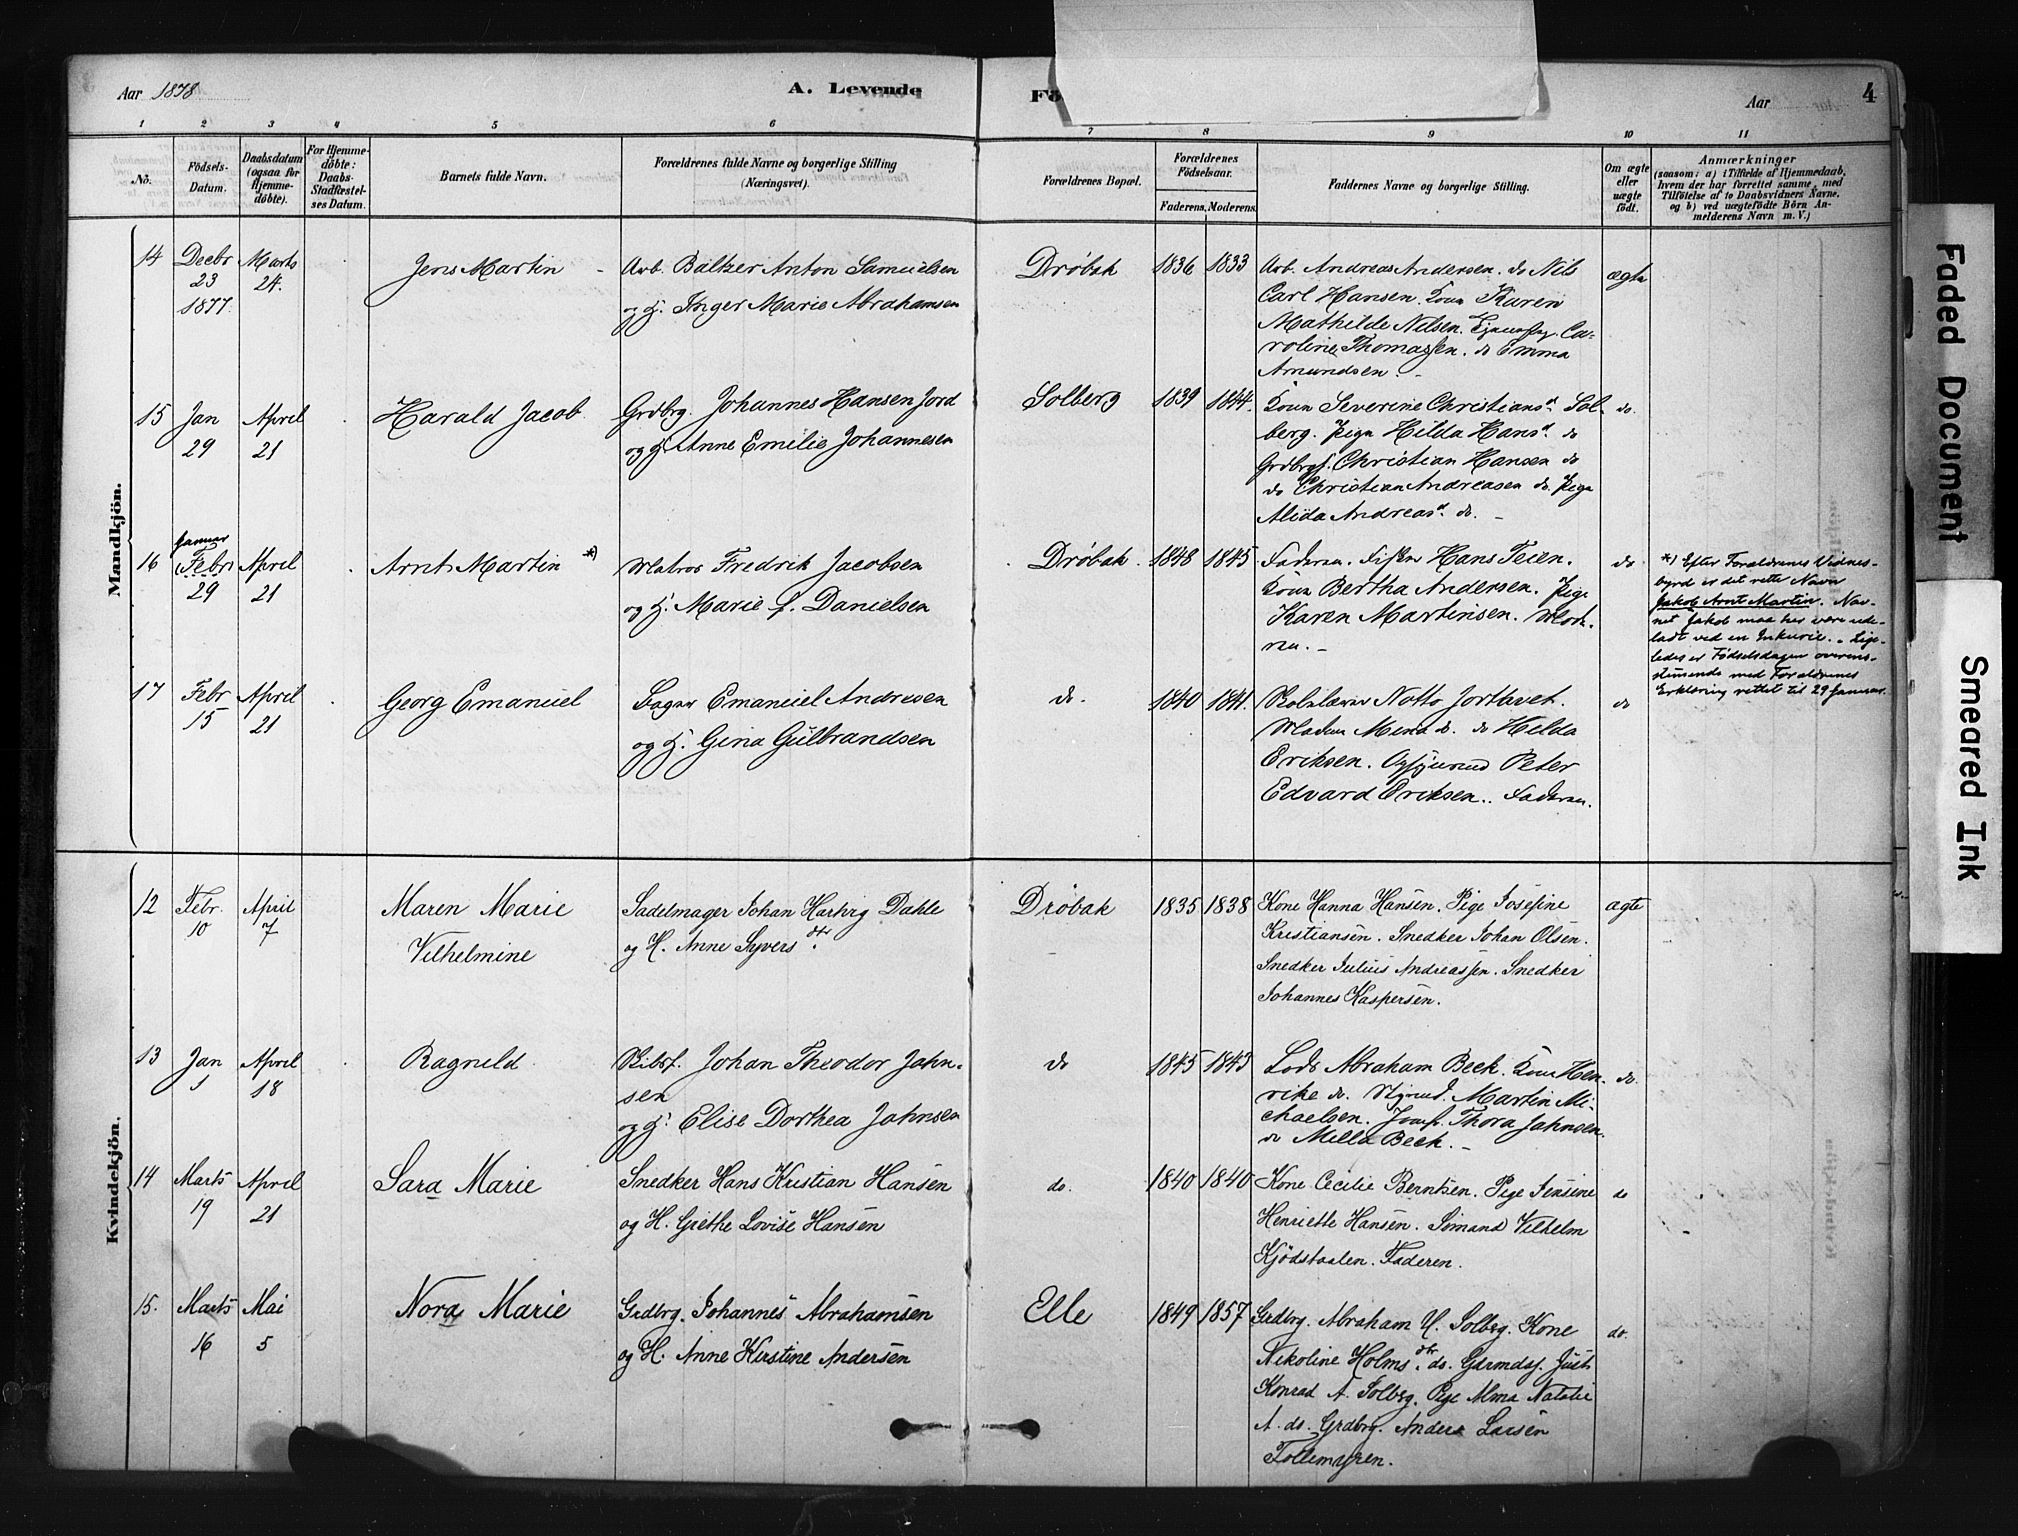 Aar 1878
A. Levende
Fö
Aar
4
1 2 3 4 5 6 7 8 9 10 11
No.
Födsels-
Datum.
Daabsdatum
(ogsaa for
Hjemme-
döbte).
For Hjemme-
döbte:
Daabs-
Stadfæstel-
ses Datum.
Barnets fulde Navn.
Forældrenes fulde Navne og borgerlige Stilling
(Næringsvei).
Forældrenes Bopæl.
Forældrenes
Födselsaar.
Faderens. Moderens.
Faddernes Navne og borgerlige Stilling.
Om ægte
eller
uægte
födt.
Anmærkninger
(saasom: a) i Tilfælde af Hjemmedaab,
hvem der har forrettet samme, med
Tilföielse af to Daabsvidners Navne,
og b) ved uægtefödte Börn An-
melderens Navn m. V.)
Mandkjön.
14
Decbr
23
1877
Marts
24.
Jens Martin
Arb. Baltzer Anton Samuelsen
og H. Inger Marie Abrahamsen
Dröbak
1836
1833
Arb. Andreas Andersen. do Nils
Carl Hansen. Kone Karen
Mathilde Nilsen. Ca-
roline Thomassen. do Emma
Amundsen.
ægte
15
Jan
29
April
21
Harald Jacob.
Grdbrg. Johannes Hansen Jord
og H. Anne Emilie Johannesen
Solberg
1839
1844.
Kone Severine Christiansd. Sol-
berg. Pige Hilda Hansd. do
Grdbrgs. Christian Hansen do
do Christian Andreasen do. Pige
Alida Andreasd. do.
do.
16
Januar
(Febr)
29
April
21
Arnt Martin *)
Matros Fredrik Jacobsen
og H. Marie f. Danielsen
Dröbak
1848
1845
Faderen. Fisker Hans Teien.
Kone Bertha Andersen. Pige
Karen Martinsen. Mode-
ren.
do
*) Efter Forældrenes Vidnes-
byrd er det rette Navn
Jakob Arnt Martin. Nav-
net Jakob maa her være ude-
ladt ved en Inkurie. Lige-
ledes er Fødselsdagen overens-
stemmende med Forældrenes
Erklæring rettet til 29 Januar.
17
Febr
15
April
21
Georg Emanuel
Bager Emanuel Andresen
og H. Gina Gulbrandsen
do.
1840
1841.
Skolelærer Notto Jorthvet.
Madam Mena do. do Helda
Eriksen. Peter
Edvard Eriksen. Faderen.
do
Kvindekjön.
12
Febr.
10
April
7
Maren Marie
Vilhelmine
Sadelmager Johan Hartvig Dahle
og H. Anne Syversdtr.
Dröbak
1835
1838
Kone Hanna Hansen. Pige Josefine
Kristiansen. Snedker Johan Olsen.
Snedker Julius Andreassen. Snedker
Johannes Kaspersen.
ægte
13
Jan
1
April
18
Ragnild
Skibsf. Johan Theodor Jahn-
sen
og H. Elise Dorthea Jahnsen
do
1845
1843
Lods Abraham Beck. Kone Hen-
rike do. Styrmd. Martin Mi-
chaelsen. Jomf. Thora Jahnsen.
do Milla Beck.
do.
14
Marts
19
April
21
Sara Marie
Snedker Hans Kristian Hansen
og H. Grethe Lovise Hansen
do.
1840
1840
Kone Cecilie Berntsen. Pige Jensine
Henriette Hansen. Sömand Vilhelm
Kjödstaalen. Faderen.
do
15.
Marts
16
Mai
5
Nora Marie
Grdbrg. Johannes Abrahamsen
og H. Anne Kirstine Andersen
Elle
1849
1857
Grdbrg. Abraham U. Solbrg. Kone
Nikoline Holmsdtr. do. Gaarmdsf. Just
Konrad A. Solbrg. Pige Alma Natalie
A. do. Grdbrg. Anders Larsen
Follemyren.
do.
Faded Document
Smeared Ink